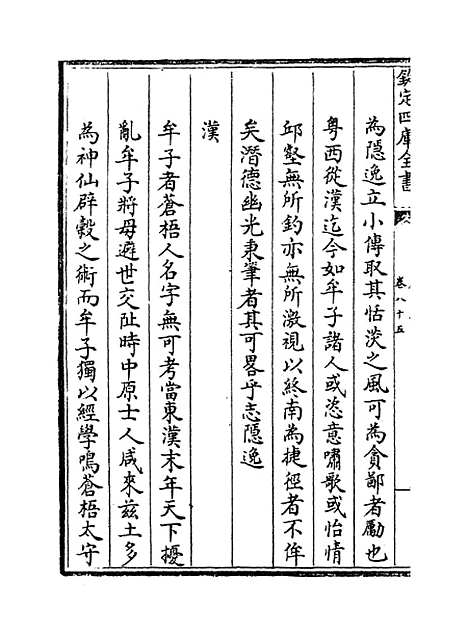 欽定四庫全書
卷八十五
為隱逸立小傳取其恬淡之風可為貪鄙者勵也
粤西從漢迄今如牟子諸人或恣意嘯歌或怡情
邱壑無所釣亦無所激視以終南為捷徑者不侔
矣潛德幽光秉筆者其可畧乎志隱逸
漢
牟子者蒼梧人名字無可考當東漢末年天下擾
亂牟子將母避世交趾時中原士人咸來兹土多
為神仙辟穀之術而牟子獨以經學鳴蒼梧太守